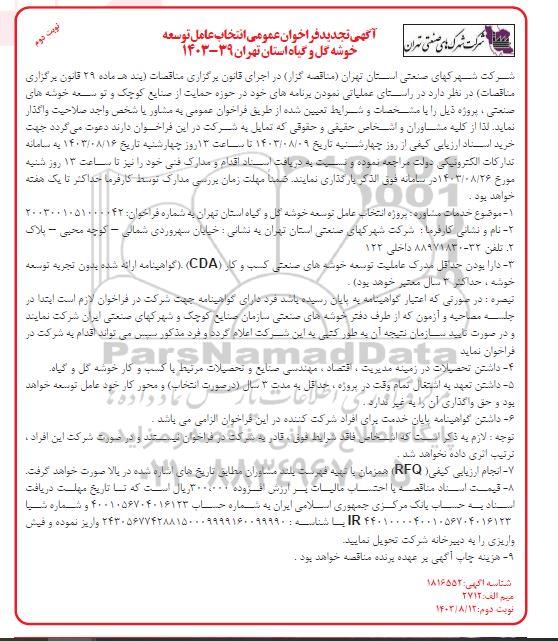 نوبت دوم
آگهی تجدید فراخوان عمومی انتخاب عامل توسعه
خوشه گل و گیاه استان تهران ۳۹-۱۴۰۳
شرکت شهرکهای صنعتی تهران
شـرکت شـهرکهای صنعتی استـان تهران (مناقصه گزار) در اجرای قانون برگزاری مناقصات (بند هـ ماده ۲۹ قانون برگزاری
مناقصات) در نظر دارد در راستـای عملیاتی نمودن برنامه های خود در حوزه حمایت از صنایع کوچک و تو سـعه خوشه های
صنعتی ، پروژه ذیل را با مشـخصات و شـرایط تعیین شده از طریق فراخوان عمومی به مشاور یا شخص واجد صلاحیت واگذار
نماید. لذا از کلیه مشـاوران و اشـخاص حقیقی و حقوقی که تمایل به شرکت در این فراخـوان دارند دعوت می‌گردد جهت
خرید اسـناد ارزیابی کیفی از روز چهارشـنبه تاریخ ۱۴۰۳/۰۸/۰۹ تا ساعت ۱۳روز چهارشنبه تاریخ ۱۴۰۳/۰۸/۱۶ به سامانه
تدارکات الکترونیکی دولت مراجعه نموده و نسبت به دریافت اسـناد اقدام و مدارک فنی خود را نیز تا ساعت ۱۳ روز شنبه
مورخ ۱۴۰۳/۰۸/۲۶در سامانه فوق الذکر بارگذاری نمایند. ضمنا مهلت زمان بررسی مدارک توسط کارفرما حداکثر تا یک هفته
خواهد بود .
۱-موضوع خدمات مشاوره : پروژه انتخاب عامل توسعه خوشه گل و گیاه استان تهران به شماره فراخوان: ۲۰۰۳۰۰۱۰۵۱۰۰۰۰۴۲
۲- نام و نشانی کارفرما : شرکت شهرکهای صنعتی استان تهران به نشانی : خیابان سهروردی شمالی – کوچه محبی – پلاک
۲. تلفن ۳۲-۸۸۹۷۱۸۳۰ داخلی ۱۲۲
۳- دارا بودن حداقل مدرک عاملیت توسعه خوشه های صنعتی کسب و کار (CDA) .(گواهینامه ارائه شده بدون تجربه توسعه
خوشه ، حداکثر ۳ سال معتبر خواهد بود) .
تبصره : در صورتی که اعتبار گواهینامه به پایان رسیده باشد فرد دارای گواهینامه جهت شرکت در فراخوان لازم است ابتدا در
جلسـه مصاحبه و آزمون که از طرف دفتر خوشه های صنعتی سازمان صنایع کوچک و شهرکهای صنعتی ایران شرکت نمایند
و در صورت تایید سـازمان نتیجه آن به طور کتبی به این شـرکت اعلام گردد و فرد مذکور سپس می تواند اقدام به شرکت در
فراخوان نماید
۴- داشتن تحصیلات در زمینه مدیریت ، اقتصاد ، مهندسی صنایع و تحصیلات مرتبط با کسب و کار خوشه گل و گیاه.
۵- داشتن تعهد به اشتغال تمام وقت در پروژه ، حداقل به مدت ۳ سال (درصورت انتخاب) و محور کار خود عامل توسعه خواهد
بود و حق واگذاری آن را به غیر ندارد .
۶- داشتن گواهینامه پایان خدمت برای افراد شرکت کننده در این فراخوان الزامی می باشد .
توجه : لازم به ذکر اسـت که اشـخاص فاقد شرایط فوق ، قادر به شرکت در فراخوان نیسـتند و در صورت شرکت این افراد ،
ترتیب اثری داده نخواهد شد .
۷- انجام ارزیابی کیفی( RFQ) همزمان با تهیه فهرست بلند مشاوران مطابق تاریخ های اشاره شده در بالا صورت خواهد گرفت.
۸- قیمـت اسـناد مناقصـه با احتسـاب مالیـات بـر ارزش افـزوده ۳۰۰,۰۰۰ریال است که تـا تاریخ مهلـت دریافت
اسـناد بـه حسـاب بانک مرکـزی جمهوری اسـلامی ایران به شـماره حسـاب ۴۰۰۱۰۵۶۷۰۴۰۱۶۱۲۳ و شماره شبا
IR ۴۴۰۱۰۰۰۰۴۰۰۱۰۵۶۷۰۴۰۱۶۱۲۳ بـا شناسـه : ۲۴۳۰۵۶۷۷۴۲۸۸۱۵۰۰۰۹۹۹۹۱۶۰۰۹۹۹۹۰ واریز نموده و فیش
واریزی را به دبیرخانه شرکت تحویل نمایید.
۹- هزینه چاپ آگهی بر عهده برنده مناقصه خواهد بود .
شناسه آگهی: ۱۸۱۶۵۵۲
میم الف:۲۷۱۲
نوبت دوم:۱۴۰۳/۸/۱۲
ParsNamadData